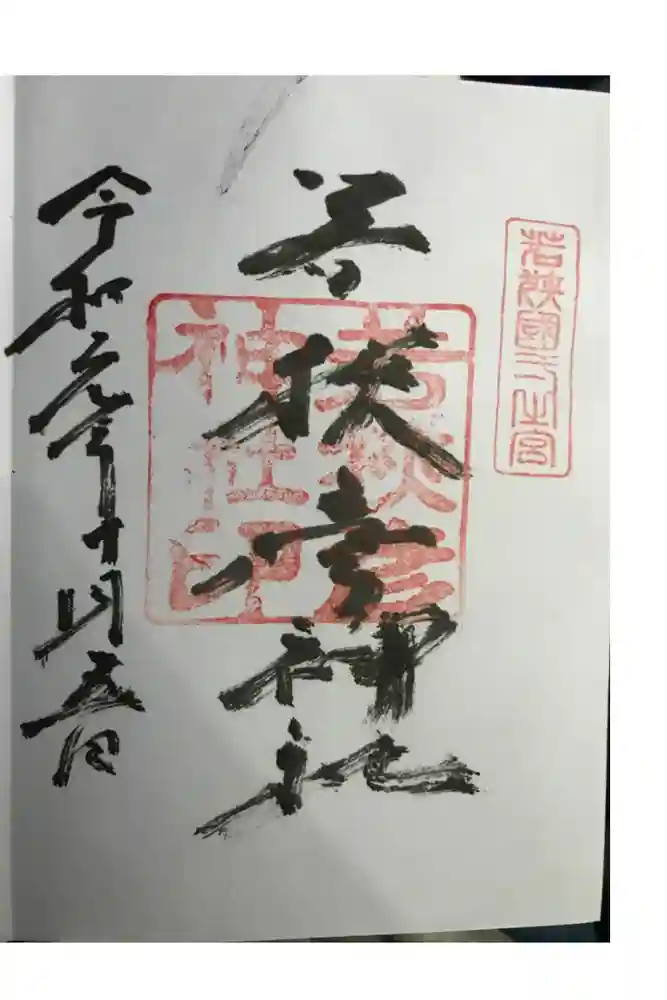 若狹國一之宮
若狭彦神社
若狹彦
神社印
令和元年十月五日